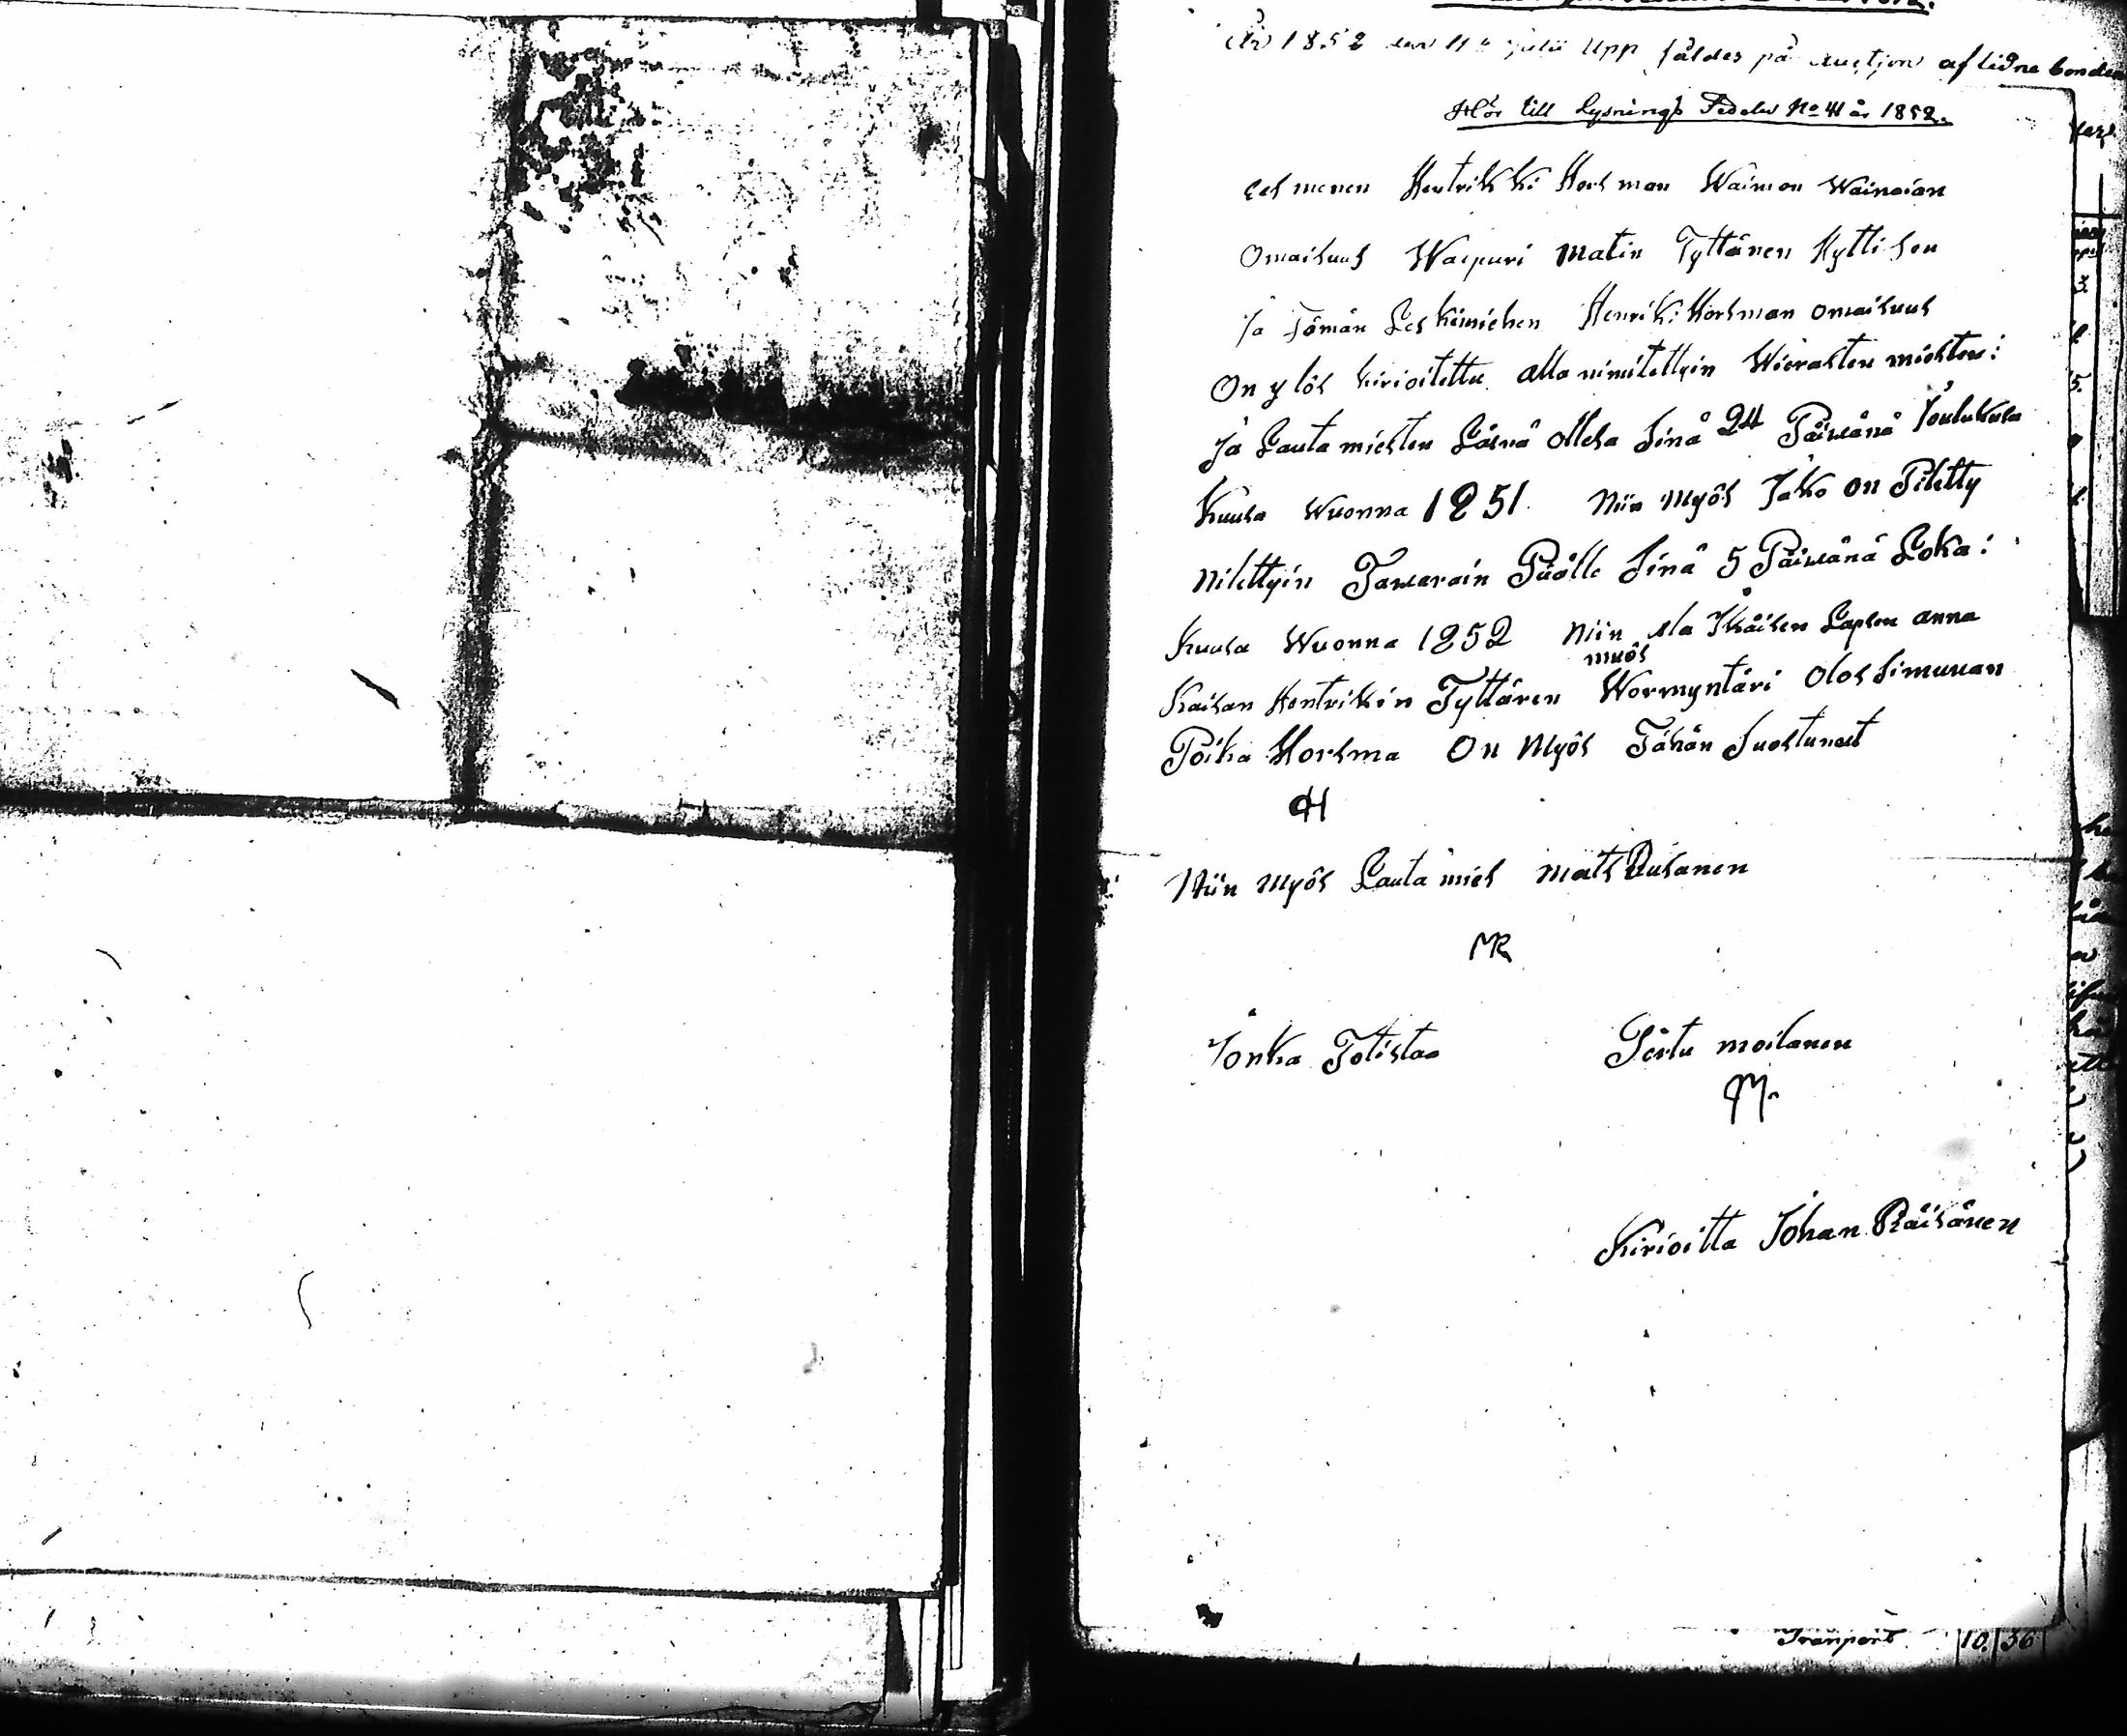 År 1852 den 11 Julii Upp såldes på Auctjon aflidne bonden
Hör till Lysnings Sedeln No 41 år 1852.
Lesmenen Hentrikki Horsman Waimon Wainaian
Omaisuus Waipuri Matin Tyttären Hyttisen
Ja Tämän Leskimiehen Henriki Horsman omaisuus
On ylös kirioitettu alla nimitettyin Wierasten miesten:
Ja Lauta miesten Läsnä ollesa Sinä 24 Päiwänä Joulukusa
Kuusa Wuonna 1851. Niin Myös Jako on Pitetty
Nitettyin Tawarain Päälle Sinä 5 Päiwänä Loka:
Kuusa Wuonna 1852 Niin ala Ikäisen Lapsen anna
muös
Kaisan Hentrikin Tyttären Wormyntäri Olos Simunan
Poika Horsma On Myös Tähän Suostunut
OH
Niin Myös Lauta mies Mats Rusanen
MR
Jonka Totistaa Pertu moilanen
PM.
Kirioitta Johan Räisänen
Tranport 10. 56